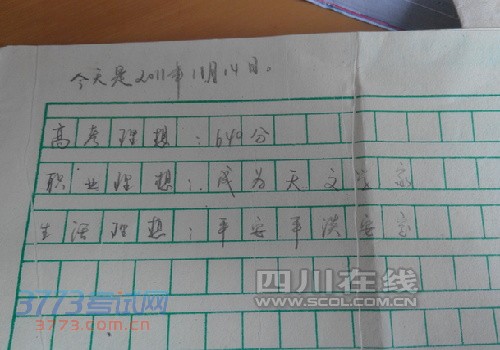 今天是2011年11月14日。
高考理想：640分
职业理想：成为天文学家
生活理想：平安平淡安宁
四川在线
WWW.SCOL.COM.CN
3773考试网
3773.com.cn